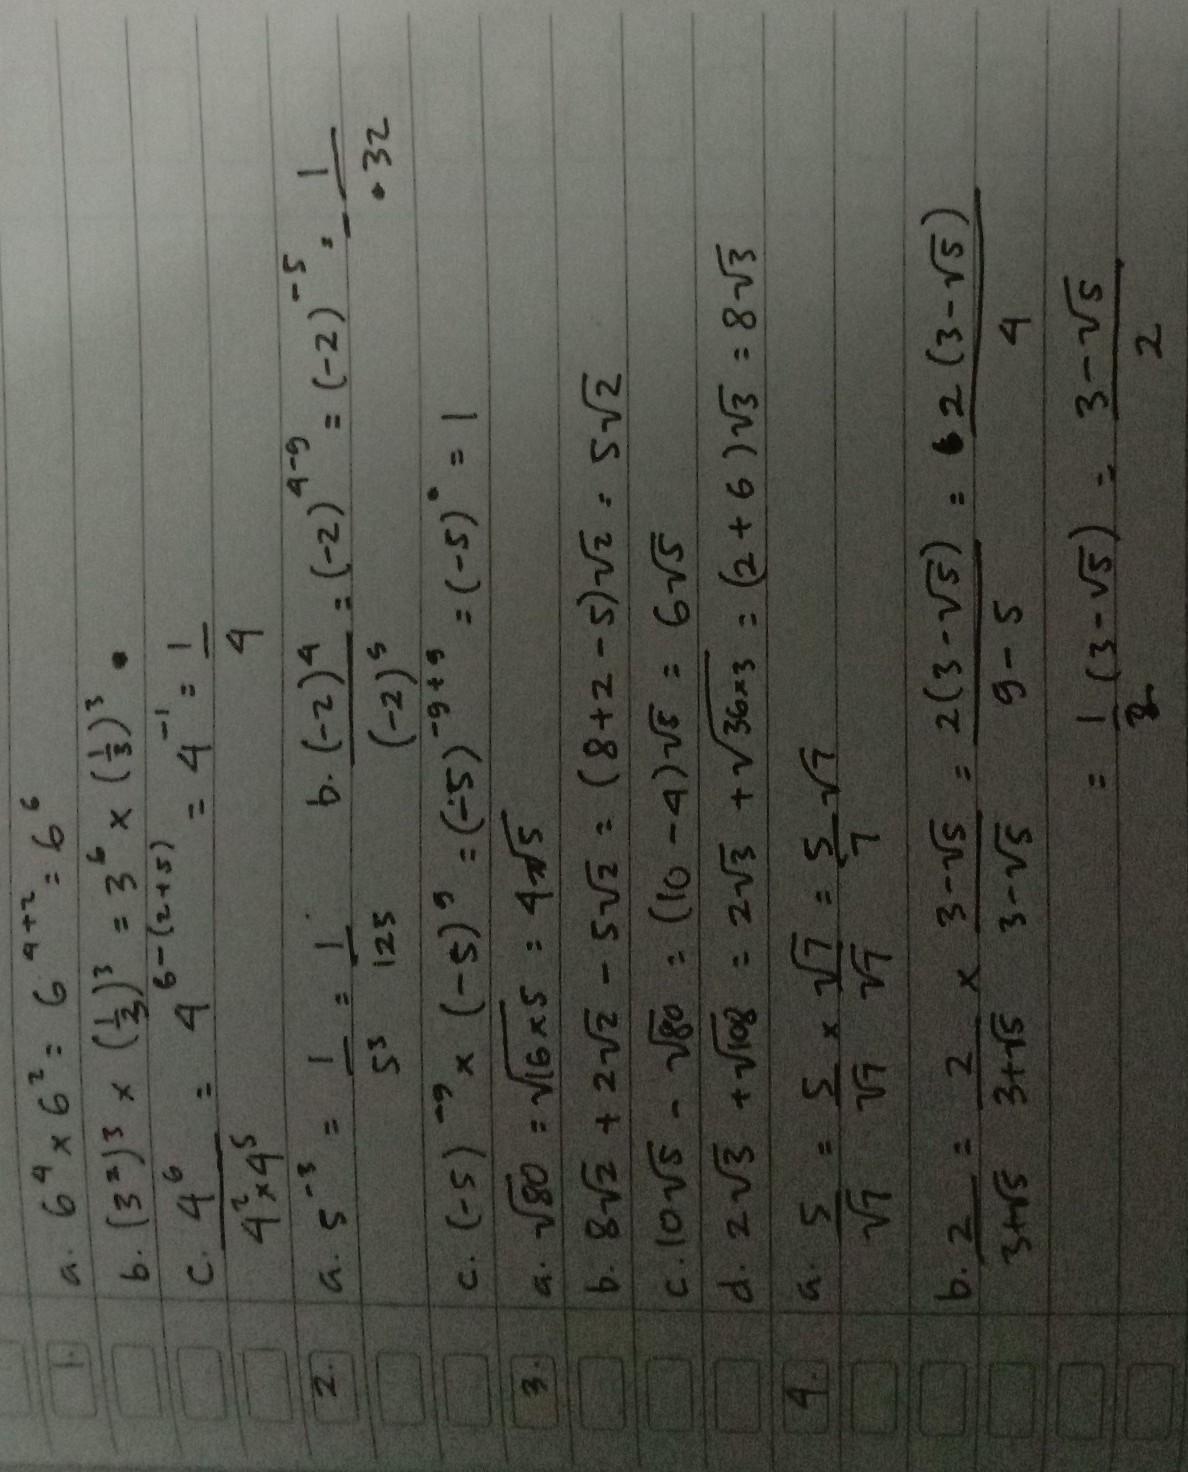 1. a. 6⁴ × 6² = 6⁴⁺² = 6⁶
b. (3²)³ × (1/3)³ = 3⁶ × (1/3)³
c. 4⁶ / 4² × 4⁵ = 4⁶⁻⁽²⁺⁵⁾ = 4⁻¹ = 1/4
2. a. 5⁻³ = 1/5³ = 1/125 b. (-2)⁴/(-2)⁹ = (-2)⁴⁻⁹ = (-2)⁻⁵ = -1/32
c. (-5)⁻⁹ × (-5)⁹ = (-5)⁻⁹⁺⁹ = (-5)⁰ = 1
3. a. √80 = √16×5 = 4√5
b. 8√2 + 2√2 - 5√2 = (8+2-5)√2 = 5√2
c. 10√5 - √80 = (10-4)√5 = 6√5
d. 2√3 + √108 = 2√3 + √36×3 = (2+6)√3 = 8√3
4. a. 5/√7 = 5/√7 × √7/√7 = 5/7 √7
b. 2/3+√5 = 2/3+√5 × 3-√5/3-√5 = 2(3-√5)/9-5 = 2(3-√5)/4
= 1/2 (3-√5) = 3-√5/2